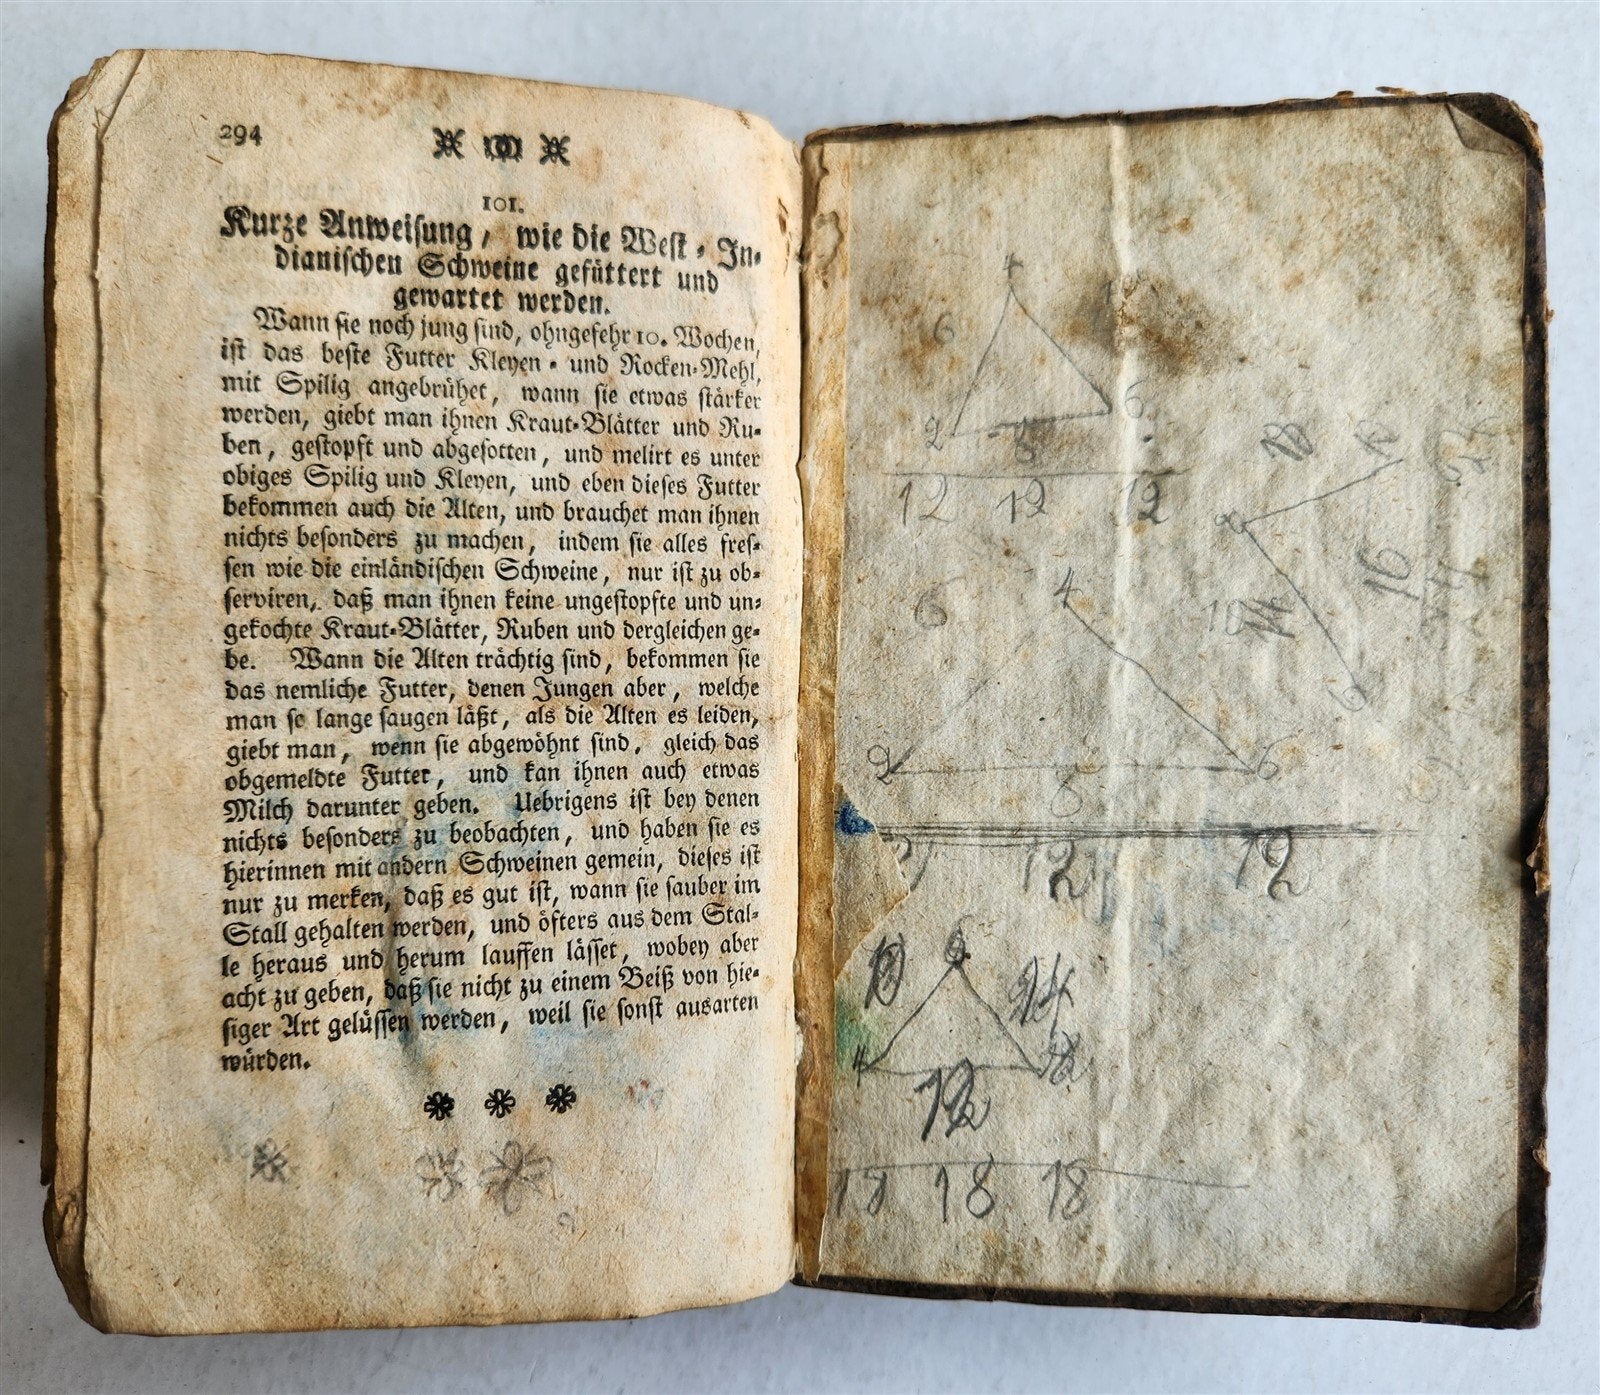 294
101.
Kurze Anweisung, wie die West-In-
dianischen Schweine gefüttert und
gewartet werden.
Wann sie noch jung sind, ohngefehr 10. Wochen,
ist das beste Futter Kleyen- und Rocken-Mehl,
mit Spilig angebrühet, wann sie etwas stärker
werden, giebt man ihnen Kraut-Blätter und Ru-
ben, gestopft und abgesotten, und melirt es unter
obiges Spilig und Kleyen, und eben dieses Futter
bekommen auch die Alten, und brauchet man ihnen
nichts besonders zu machen, indem sie alles fres-
sen wie die einländischen Schweine, nur ist zu ob-
serviren, daß man ihnen keine ungestopfte und un-
gekochte Kraut-Blätter, Ruben und dergleichen ge-
be. Wann die Alten trächtig sind, bekommen sie
das nemliche Futter, denen Jungen aber, welche
man so lange saugen läßt, als die Alten es leiden,
giebt man, wenn sie abgewöhnt sind, gleich das
obgemeldte Futter, und kan ihnen auch etwas
Milch darunter geben. Uebrigens ist bey denen
nichts besonders zu beobachten, und haben sie es
hierinnen mit andern Schweinen gemein, dieses ist
nur zu merken, daß es gut ist, wann sie sauber im
Stall gehalten werden, und öfters aus dem Stal-
le heraus und herum lauffen lässet, wobey aber
acht zu geben, daß sie nicht zu einem Beiß von hie-
siger Art gelüssen werden, weil sie sonst ausarten
würden.
4
6
2 8 6
12 12 12
8
16
6 4
2 6
8
12 12
4
12
18 18 18